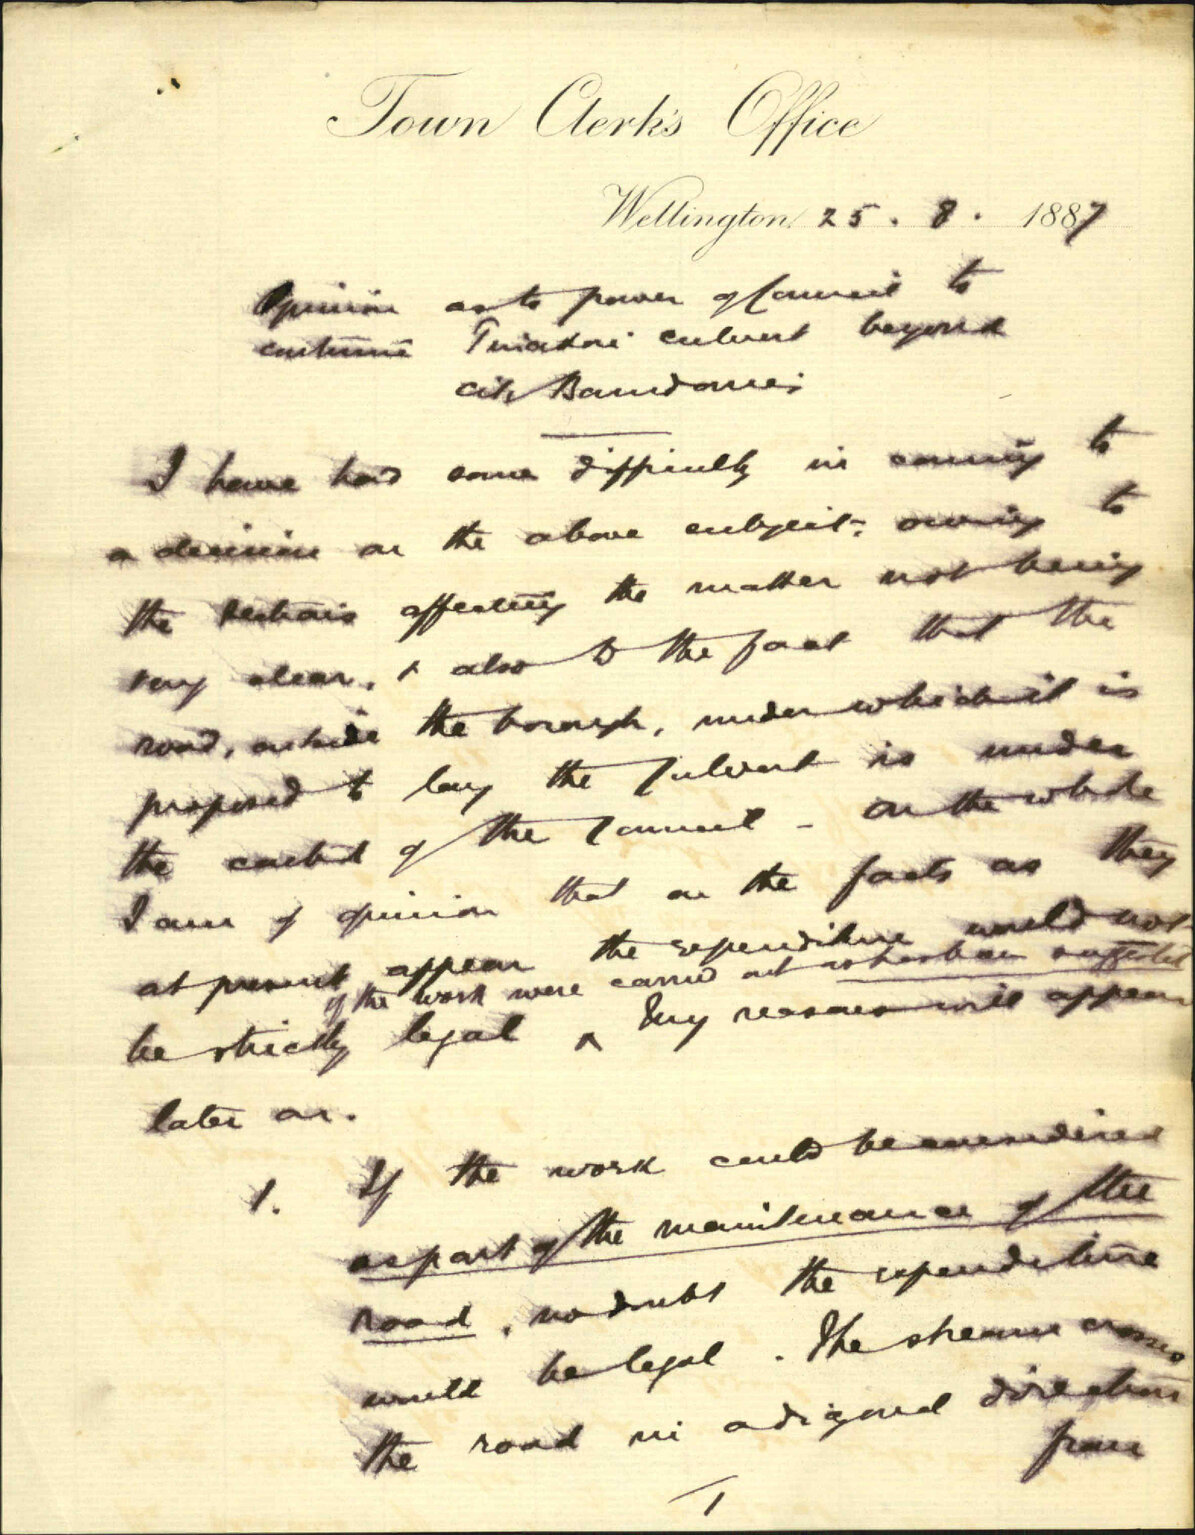 Town Clerk's Office
Wellington 25 . 8 . 1887
Opinion as to power of Council to
continue culvert beyond
city Boundaries
I have had some difficulty in coming to
a decision on the above subject; owing to
the sections affecting the matter not being
very clear, & also to the fact that the
road, outside the borough, under which it is
proposed to lay the Culvert is under
the control of the Council - On the whole
I am of opinion that on the facts as they
at present appear the expenditure would not
if the work were carried out as has been suggested
be strictly legal ^ My reasons will appear
later on.
1. If the work could be considered
as part of the maintenance of the
road, no doubt the expenditure
would be legal . The stream crosses
the road in a diagonal direction
from
1